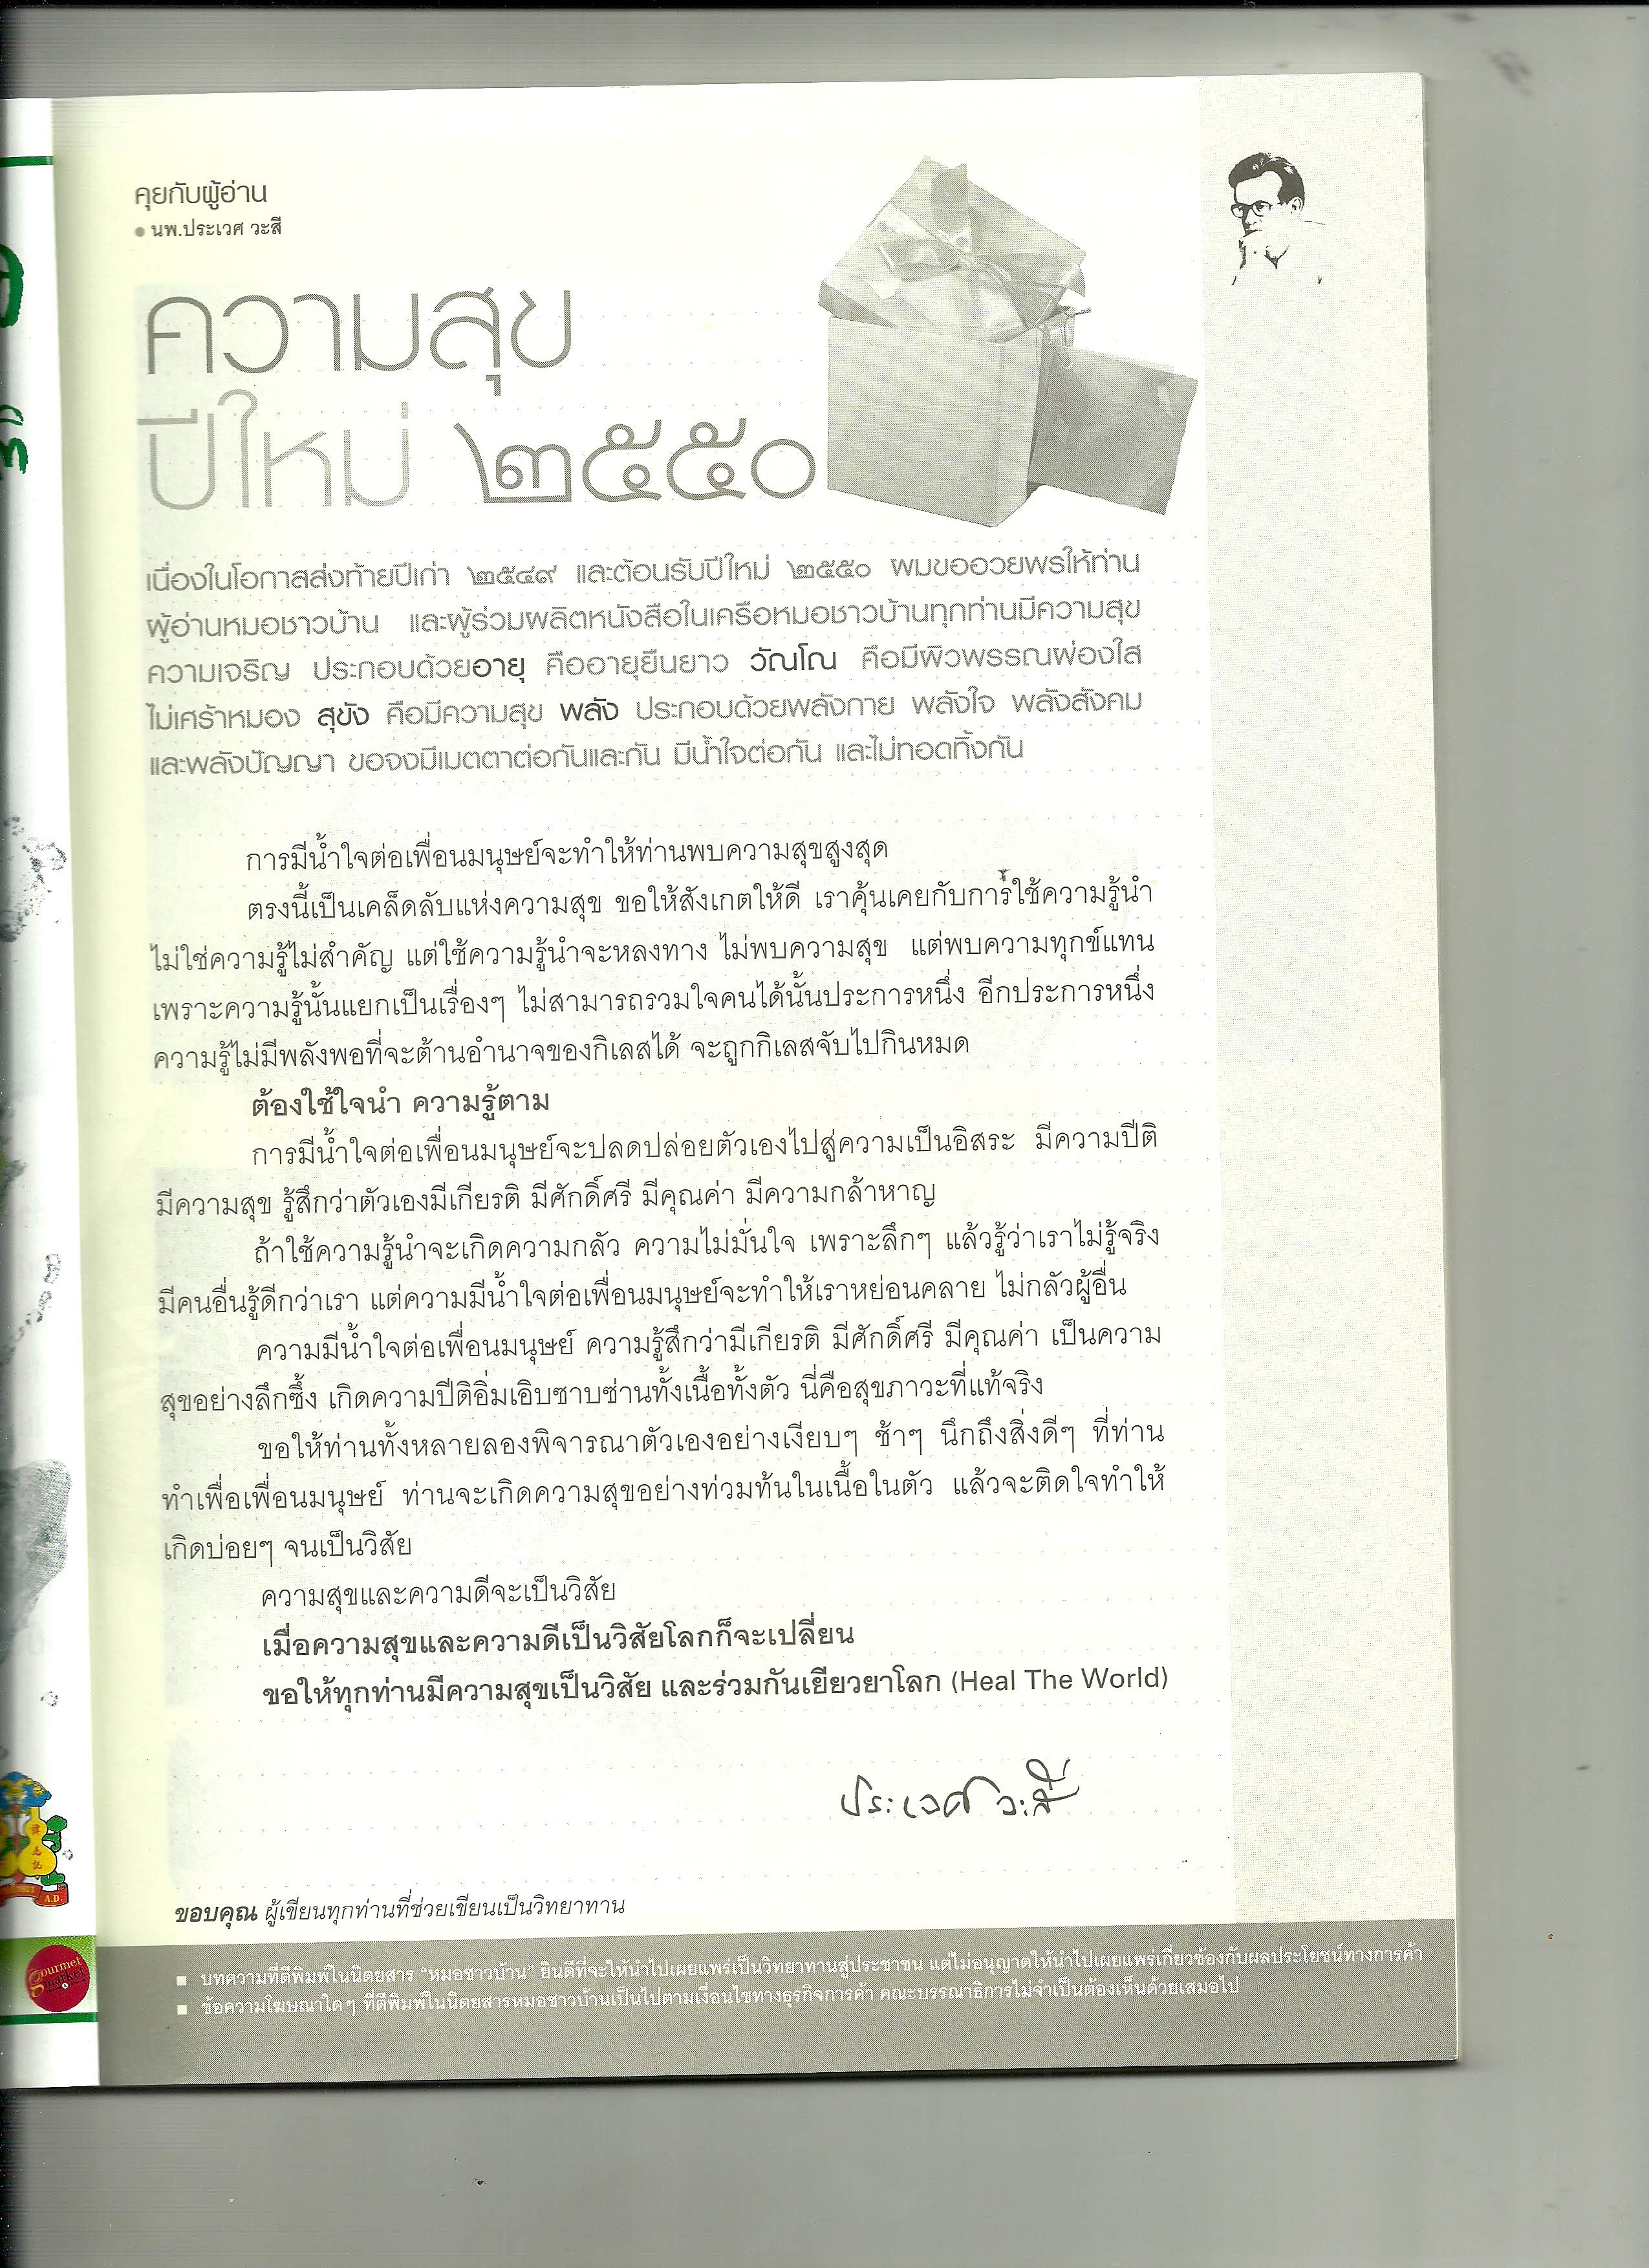 คุยกับผู้อ่าน
นพ.ประเวศ วะสี
ความสุข
ปีใหม่ ๒๕๕๐
เนื่องในโอกาสส่งท้ายปีเก่า ๒๕๔๙ และต้อนรับปีใหม่ ๒๕๕๐ ผมขออวยพรให้ท่าน
ผู้อ่านหมอชาวบ้าน และผู้ร่วมผลิตหนังสือในเครือหมอชาวบ้านทุกท่านมีความสุข
ความเจริญ ประกอบด้วยอายุ คืออายุยืนยาว วัณโณ คือมีผิวพรรณผ่องใส
ไม่เศร้าหมอง สุขัง คือมีความสุข พลัง ประกอบด้วยพลังกาย พลังใจ พลังสังคม
และพลังปัญญา ขอจงมีเมตตาต่อกันและกัน มีน้ำใจต่อกัน และไม่ทอดทิ้งกัน
การมีน้ำใจต่อเพื่อนมนุษย์จะทำให้ท่านพบความสุขสูงสุด
ตรงนี้เป็นเคล็ดลับแห่งความสุข ขอให้สังเกตให้ดี เราคุ้นเคยกับการใช้ความรู้นำ
ไม่ใช่ความรู้ไม่สำคัญ แต่ใช้ความรู้นำจะหลงทาง ไม่พบความสุข แต่พบความทุกข์แทน
เพราะความรู้นั้นแยกเป็นเรื่องๆ ไม่สามารถรวมใจคนได้นั้นประการหนึ่ง อีกประการหนึ่ง
ความรู้ไม่มีพลังพอที่จะต้านอำนาจของกิเลสได้ จะถูกกิเลสจับไปกินหมด
ต้องใช้ใจนำ ความรู้ตาม
การมีน้ำใจต่อเพื่อนมนุษย์จะปลดปล่อยตัวเองไปสู่ความเป็นอิสระ มีความปีติ
มีความสุข รู้สึกว่าตัวเองมีเกียรติ มีศักดิ์ศรี มีคุณค่า มีความกล้าหาญ
ถ้าใช้ความรู้นำจะเกิดความกลัว ความไม่มั่นใจ เพราะลึกๆ แล้วรู้ว่าเราไม่รู้จริง
มีคนอื่นรู้ดีกว่าเรา แต่ความมีน้ำใจต่อเพื่อนมนุษย์จะทำให้เราหย่อนคลาย ไม่กลัวผู้อื่น
ความมีน้ำใจต่อเพื่อนมนุษย์ ความรู้สึกว่ามีเกียรติ มีศักดิ์ศรี มีคุณค่า เป็นความ
สุขอย่างลึกซึ้ง เกิดความปีติอิ่มเอิบซาบซ่านทั้งเนื้อทั้งตัว นี่คือสุขภาวะที่แท้จริง
ขอให้ท่านทั้งหลายลองพิจารณาตัวเองอย่างเงียบๆ ช้าๆ นึกถึงสิ่งดีๆ ที่ท่าน
ทำเพื่อเพื่อนมนุษย์ ท่านจะเกิดความสุขอย่างท่วมท้นในเนื้อในตัว แล้วจะติดใจทำให้
เกิดบ่อยๆ จนเป็นวิสัย
ความสุขและความดีจะเป็นวิสัย
เมื่อความสุขและความดีเป็นวิสัยโลกก็จะเปลี่ยน
ขอให้ทุกท่านมีความสุขเป็นวิสัย และร่วมกันเยียวยาโลก (Heal The World)
ประเวศ วะสี
ขอบคุณ ผู้เขียนทุกท่านที่ช่วยเขียนเป็นวิทยาทาน
บทความที่ตีพิมพ์ในนิตยสาร “หมอชาวบ้าน” ยินดีที่จะให้นำไปเผยแพร่เป็นวิทยาทานสู่ประชาชน แต่ไม่อนุญาตให้นำไปเผยแพร่เกี่ยวข้องกับผลประโยชน์ทางการค้า
ข้อความโฆษณาใดๆ ที่ตีพิมพ์ในนิตยสารหมอชาวบ้านเป็นไปตามเงื่อนไขทางธุรกิจการค้า คณะบรรณาธิการไม่จำเป็นต้องเห็นด้วยเสมอไป
gourmet
market
A.D.